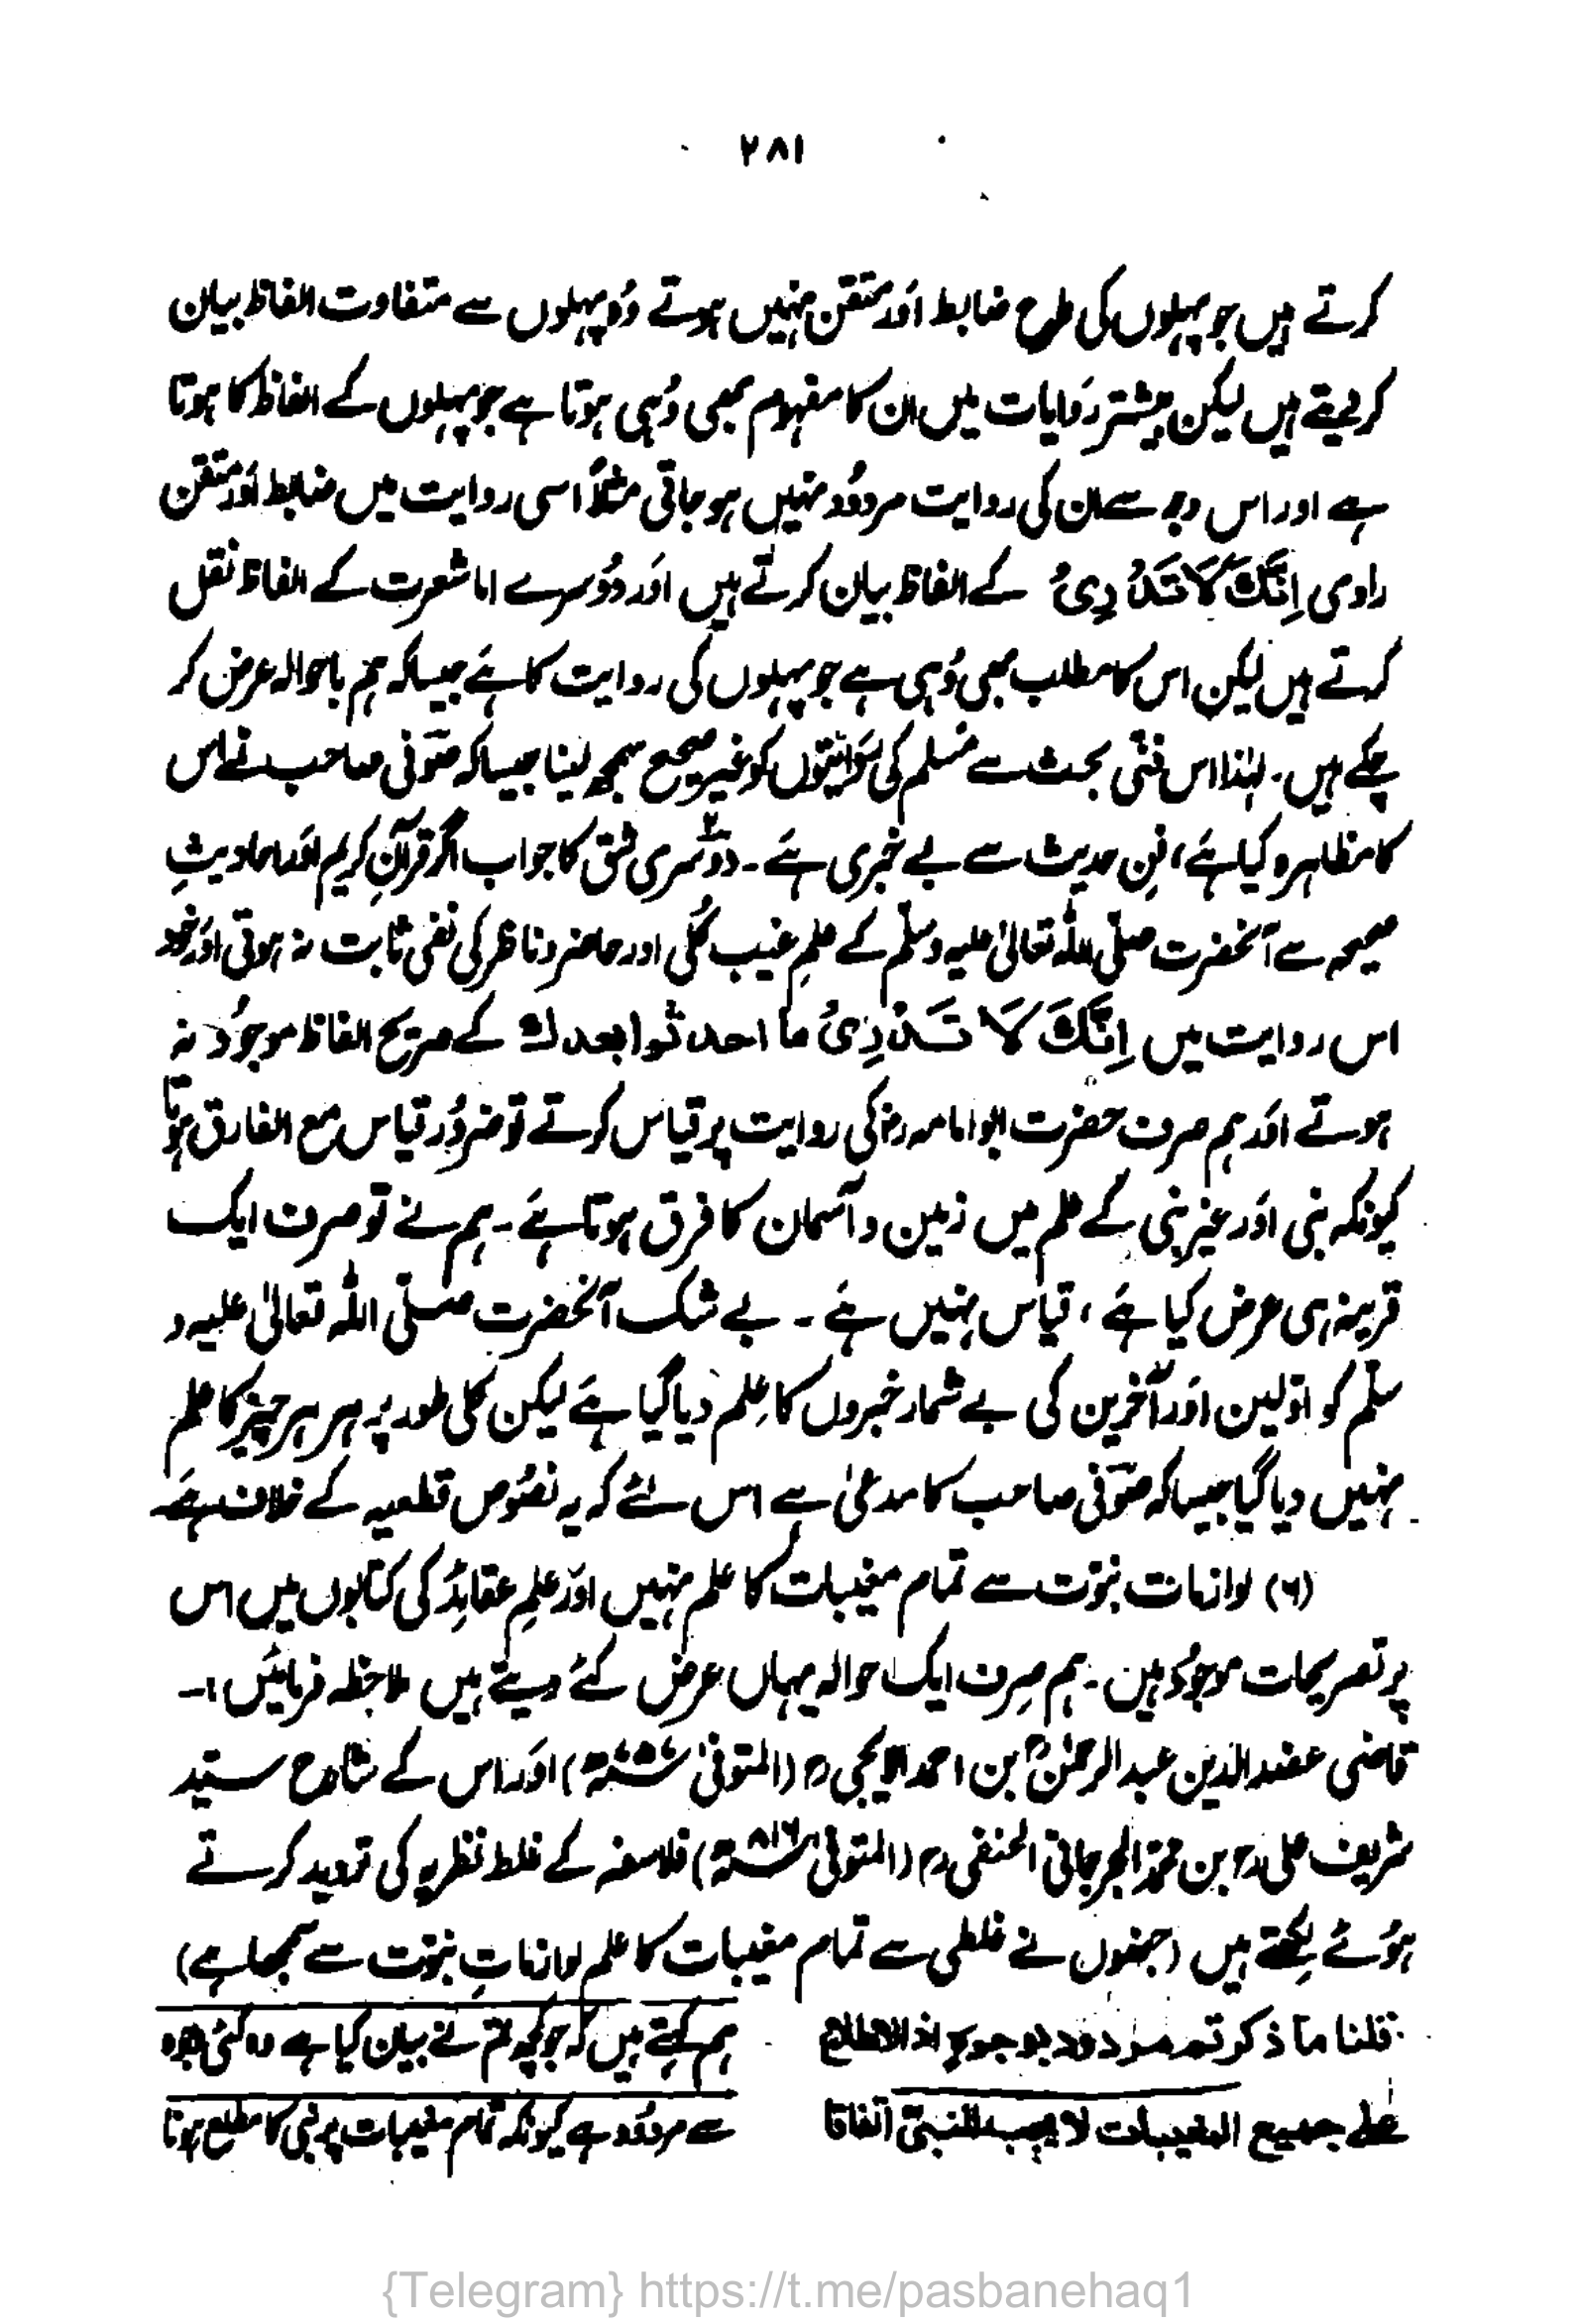 ۲۸۱
کرتے ہیں جو پہلوں کی طرح ضابط اور متقن نہیں ہوتے وُہ پہلوں سے متفاوت الفاظ بیان
کر دیتے ہیں لیکن بیشتر روایات میں ان کا مفہوم بھی وُہی ہوتا ہے جو پہلوں کے الفاظ کا ہوتا
ہے اور اس وجہ سے ان کی روایت مردود نہیں ہو جاتی مثلاً اسی روایت میں ضابط اور متقن
راوی اِنَّكَ لَا تَدْرِیْ کے الفاظ بیان کرتے ہیں اور دوسرے اما شعرت کے الفاظ نقل
کرتے ہیں لیکن اس کا مطلب بھی وُہی ہے جو پہلوں کی روایت کا ہے جیسا کہ ہم باحوالہ عرض کر
چکے ہیں۔ لہٰذا اس فنّی بحث سے مسلم کی روایتوں کو غیر صحیح سمجھ لینا جیسا کہ صوفی صاحب نے اس
کا مظاہرہ کیا ہے، فنِ حدیث سے بے خبری ہے۔ دوسری شق کا جواب اگر قرآنِ کریم اور احادیثِ
صحیحہ سے آنحضرت صلّی اللہ تعالیٰ علیہ وسلّم کے علمِ غیب کُلّی اور حاضر و ناظر کی نفی ثابت نہ ہوتی اور خود
اس روایت میں اِنَّكَ لَا تَدْرِیْ ما احدثوا بعدك کے صریح الفاظ موجود نہ
ہوتے اور ہم صرف حضرت ابو امامہ رضؓ کی روایت پر قیاس کرتے تو ضرور قیاس مع الفارق ہوتا
کیونکہ نبی اور غیر نبی کے علم میں زمین و آسمان کا فرق ہوتا ہے۔ ہم نے تو صرف ایک
قرینہ ہی عرض کیا ہے، قیاس نہیں ہے۔ بے شک آنحضرت صلّی اللہ تعالیٰ علیہ و
سلّم کو اوّلین اور آخرین کی بے شمار خبروں کا عِلم دیا گیا ہے لیکن کلی طور پر ہر ہر چیز کا علم
نہیں دیا گیا جیسا کہ صوفی صاحب کا مدعیٰ ہے اس لئے کہ یہ نصوص قطعیہ کے خلاف ہے۔
(۶) لوازمات نبوّت سے تمام مغیبات کا علم نہیں اور علمِ عقائد کی کتابوں میں اس
پر تصریحات موجود ہیں۔ ہم صرف ایک حوالہ یہاں عرض کئے دیتے ہیں ملاحظہ فرمائیں :-
قاضی عضد الدین عبد الرحمٰنؒ بن احمد الایجیؒ (المتوفیٰ ۷۵۶ھ) اور اس کے شارح سیّد
شریف علیؒ بن محمد الجرجانی الحنفیؒ (المتوفیٰ ۸۱۶ھ) فلاسفہ کے غلط نظریہ کی تردید کرتے
ہوئے لکھتے ہیں (جنھوں نے غلطی سے تمام مغیبات کا علم لوازماتِ نبوّت سے سمجھا ہے)
قلنا ما ذكرتم مردود بوجوہ اذ الاطلاع
على جميع المغيبات لا يجب للنبيّ اتفاقا
ہم کہتے ہیں کہ جو کچھ تم نے بیان کیا ہے وہ کئی وجوہ
سے مردود ہے کیونکہ تمام مغیبات پر نبی کا مطلع ہونا
{Telegram} https://t.me/pasbanehaq1